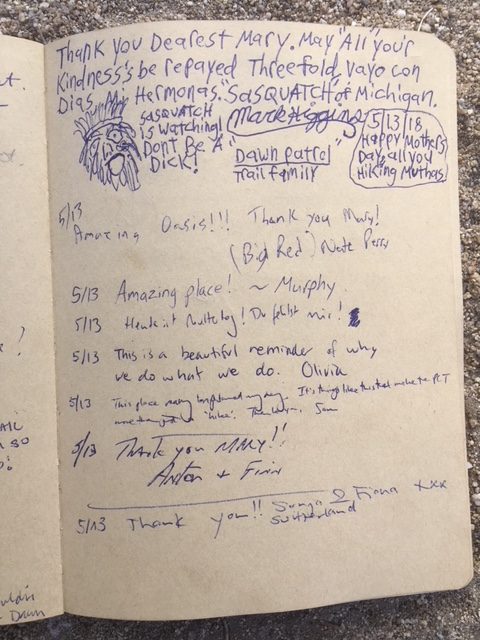 Thank you Dearest Mary. May "All" your
Kindness's be repayed Threefold, vayo con
Dias, My Hermonas. "SASQUATCH of Michigan."
SASQUATCH
is watching!
Dont Be A
Dick!
Mark Higgins
"Dawn patrol"
Trail family
5/13/18
Happy Mothers
Day, all you
Hiking Muthas.
5/13
Amazing Oasis!!! Thank you Mary!
(Big Red) Nate Perry
5/13 Amazing place! ~ Murphy
5/13 Heute ist Muttertag! Du fehlst mir!
5/13 This is a beautiful reminder of why
we do what we do. Olivia
5/13 This place my day. It's things like this that make the PCT
more than just a 'hike'. Sam
5/13 Thank you MARY!!
Anton + Finn
5/13 Thank you!! & Fiona xxx
ould n